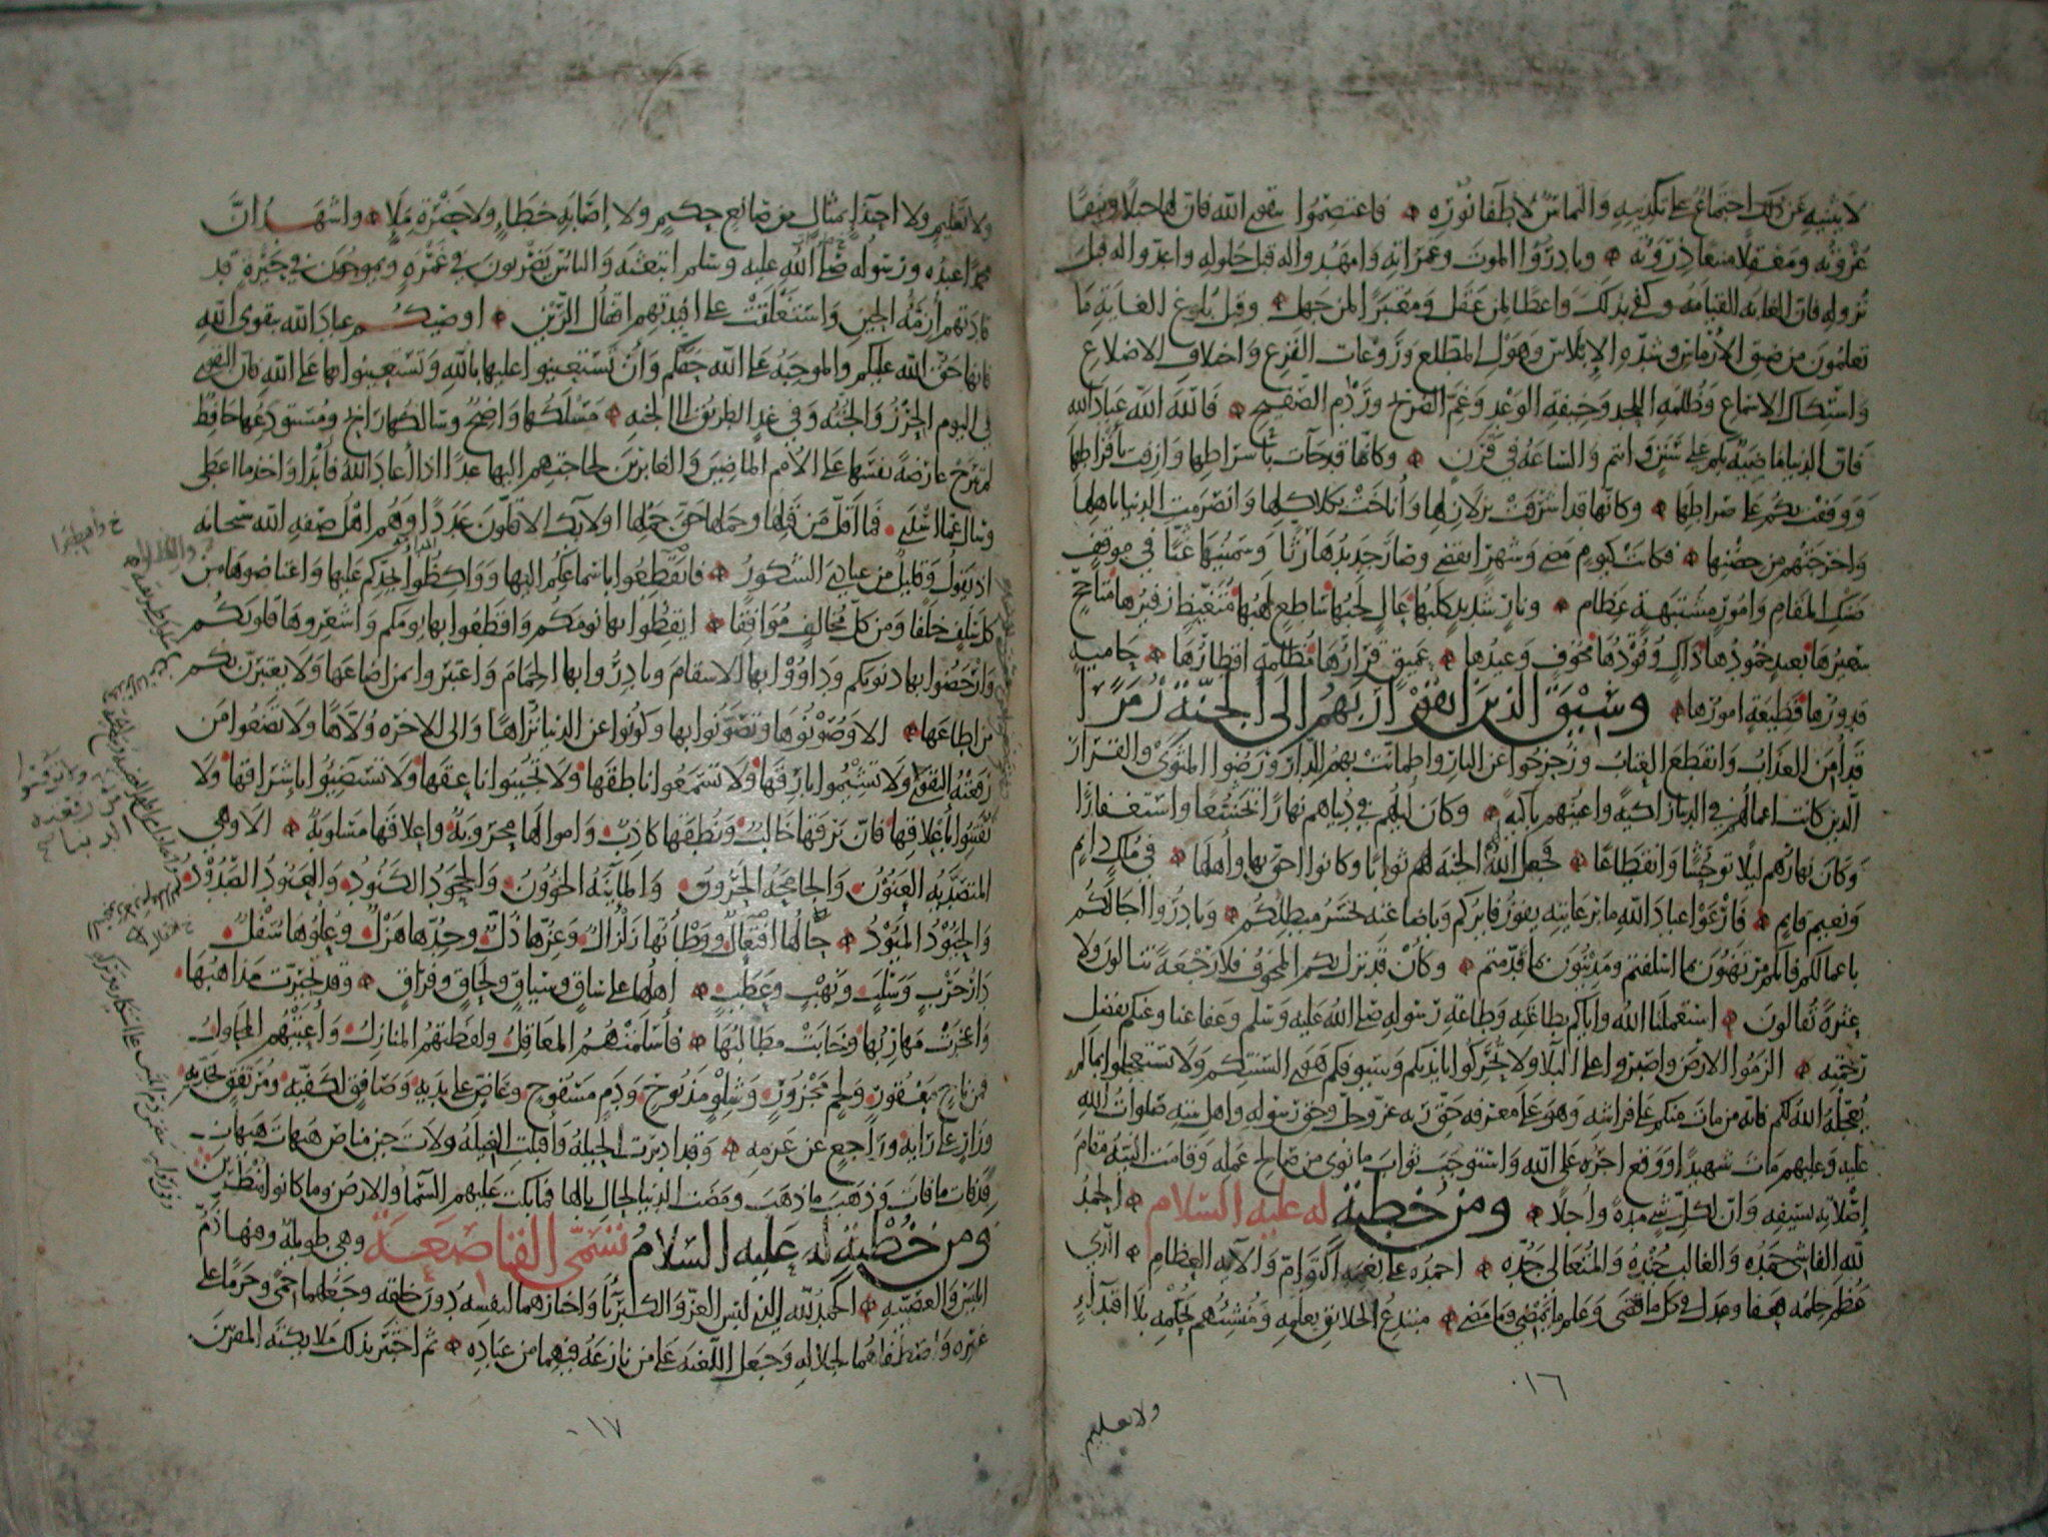 لا يثنيه عن ذلك اجتماع على تكذيبه والتماس لاطفاء نوره فاعتصموا بتقوى الله فان لها حبلا وثيقا
عروته ومعقلا منيعا ذروته وبادروا الموت وغمراته وامهدوا له قبل حلوله واعدوا له قبل
نزوله فان الغاية القيامة وكفى بذلك واعظا لمن عقل ومعتبرا لمن جهل وقبل بلوغ الغاية ما
تعلمون من ضيق الارماس وشدة الابلاس وهول المطلع وروعات الفزع واختلاف الاضلاع
واستكاك الاسماع وظلمة اللحد وخيفة الوعد وغم الضريح وردم الصفيح فالله الله عباد الله
فان الدنيا ماضية بكم على سنن وانتم والساعة في قرن وكانها قد جاءت باشراطها وازفت بافراطها
ووقفت بكم على صراطها وكانها قد اشرفت بزلازلها واناخت بكلاكلها وانصرمت الدنيا باهلها
واخرجتهم من حضنها فكانت كيوم مضى وشهر انقضى وصار جديدها رثا وسمينها غثا في موقف
ضنك المقام وامور مشتبهة عظام ونار شديد كلبها عال لجبها ساطع لهبها متغيظ زفيرها متاجج
سعيرها بعيد خمودها ذاك وقودها مخوف وعيدها عميق قرارها مظلمة اقطارها حامية
قدورها فظيعة امورها وسيق الذين اتقوا ربهم الى الجنة زمرا
قد امن العذاب وانقطع العتاب وزحزحوا عن النار واطمانت بهم الدار ورضوا المثوى والقرار
الذين كانت اعمالهم في الدنيا زاكية واعينهم باكية وكان ليلهم في دنياهم نهارا تخشعا واستغفارا
وكان نهارهم ليلا توحشا وانقطاعا فجعل الله الجنة لهم ثوابا وكانوا احق بها واهلها في ملك دايم
ونعيم قايم فارعوا عباد الله ما برعايته يفوز فايزكم وباضاعته يخسر مبطلكم وبادروا آجالكم
باعمالكم فانكم مرتهنون بما اسلفتم ومدينون بما قدمتم وكأن قد نزل بكم المخوف فلا رجعة تنالون ولا
عثرة تقالون استعملنا الله واياكم بطاعته وطاعة رسوله صلى الله عليه وسلم وعفا عنا وعنكم بفضل
رحمته الزموا الارض واصبروا على البلاء ولا تحركوا بايديكم وسيوفكم هوى السنتكم ولا تستعجلوا بما لم
يعجله الله لكم فانه من مات منكم على فراشه وهو على معرفة حق ربه عز وجل وحق رسوله واهل بيته صلوات الله
عليه وعليهم مات شهيدا ووقع اجره على الله واستوجب ثواب ما نوى من صالح عمله وقامت النية مقام
اصلاته بسيفه وان لكل شي مدة واجلا ومن خطبة له عليه السلام الحمد
لله الفاشي حمده والغالب جنده والمتعالى جده احمده على نعمه التوام وآلائه العظام الذي
عظم حلمه فعفا وعدل في كل ما قضى وعلم ما يمضي وما مضى مبتدع الخلائق بعلمه ومنشئهم بحكمه بلا اقتداء
٠١٦
ولا تعليم
ولا تعليم ولا احتذاء لمثال من صانع حكيم ولا اصابة خطاء ولا حضرة ملاء واشهد ان
محمدا عبده ورسوله صلى الله عليه وسلم ابتعثه والناس يضربون في غمرة ويموجون في حيرة قد
قادتهم ازمة الحين واستغلقت على افئدتهم اقفال الرين اوصيكم عباد الله بتقوى الله
فانها حق الله عليكم والموجبة على الله حقكم وان تستعينوا عليها بالله وتستعينوا بها على الله فان التقوى
في اليوم الحرز والجنة وفي غد الطريق الى الجنة مسلكها واضح وسالكها رابح ومستودعها حافظ
لم تبرح عارضة نفسها على الامم الماضين والغابرين لحاجتهم اليها غدا اذا اعاد الله ما ابدا واخذ ما اعطى
وسال عما اسدى فما اقل من قبلها وحملها حق حملها اولائك الاقلون عددا وهم اهل صفة الله سبحانه
اذ يقول وقليل من عبادي الشكور فانقطعوا باسماعكم اليها وواكظوا بجدكم عليها واعتاضوها من
كل سلف خلفا ومن كل مخالف موافقا ايقظوا بها نومكم واقطعوا بها يومكم واشعروها قلوبكم
وارحضوا بها ذنوبكم وداووا بها الاسقام وبادروا بها الحمام واعتبروا بمن اضاعها ولا يعتبرن بكم
من اطاعها الا وصونوها وتصونوا بها وكونوا عن الدنيا نزاها والى الاخرة ولاها ولا تضعوا من
رفعته التقوى ولا تشيموا بارقها ولا تستمعوا ناطقها ولا تجيبوا ناعقها ولا تستضيئوا باشراقها ولا
تفتنوا باعلاقها فان برقها خالب ونطقها كاذب واموالها محروبة واعلاقها مسلوبة الا وهي
المتصدية العنون والجامحة الحرون والمائنة الخؤون والجحود الكنود والعنود الصدود
والحيود الميود حالها افتعال ووطاتها زلزال وعزها ذل وجدها هزل وعلوها سفل
دار حرب وسلب ونهب وعطب اهلها على ساق وسياق ولحاق وفراق وقد تحيرت مذاهبها
واعجزت مهاربها وخابت مطالبها فاسلمتهم المعاقل ولفظتهم المنازل واعيتهم المحاول
فمن ناج معقور ولحم مجزور وشلو مذبوح ودم مسفوح وعاض على يديه وصافق لكفيه ومرتفق لخديه
وزار على رايه وراجع عن عزمه وقد ادبرت الحيلة واقبلت الغيلة ولات حين مناص هيهات هيهات
قد فات ما فات وذهب ما ذهب ومضت الدنيا لحال بالها فما بكت عليهم السماء والارض وما كانوا منظرين
ومن خطبة له عليه السلام تسمى القاصعة وهي طويلة وفيها ذم
الكبر والعصبية الحمد لله الذي لبس العز والكبرياء واختارهما لنفسه دون خلقه وجعلهما حمى وحرما على
غيره واصطفاهما لجلاله وجعل اللعنة على من نازعه فيهما من عباده ثم اختبر بذلك ملائكته المقربين
٠١٧